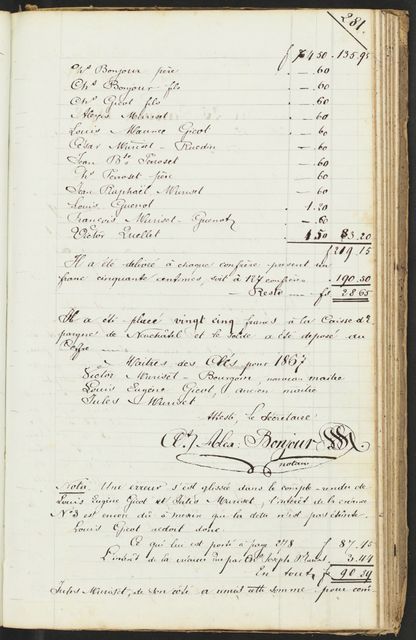 281.
f 74.50 . 135.95
Chs Bonjour père . — .60
Chs Bonjour fils . — .60
Chs Gicot fils . — .60
Alexis Muriset . — .60
Louis Maurice Gicot . — .60
César Muriset - Ruedin . — .60
Jean Bte . — .60
Chs père . — .60
Jean Raphaël Muriset — .60
Louis Guenot . 1.20
François Muriset - Guenot . — .60
Victor Quellet 1.50 83.20
f 219.15
Il a été délivré à chaque confrère présent un
franc cinquante centimes, soit à 127 confrères 190.50
— Reste — fs 28.65
Il a été placé vingt cinq francs à la Caisse d'E
pargne de Neuchâtel et le solde a été déposé au
Coffre
Maitres des Clés pour 1867
Victor Muriset - Bourgoin, nouveau maitre
Louis Eugène Gicot, ancien maitre
Jules Muriset
Atteste, le Secrétaire
Ch. Alex. Bonjour
notaire
Nota. Une erreur s'est glissée dans le compte-rendu de
Louis Eugène Gicot et Jules Muriset, l'intérêt de la créance
No 3 est encore dû à moins que la dette n'ait pas éteinte.
Louis Gicot redoit donc
Ce qui lui est porté à pag 278 f 87.15
L'intérêt de la créance due par Ch. Joseph 3.44
En tout, f 90.59
Jules Muriset, de son côté a remis cette somme pour com